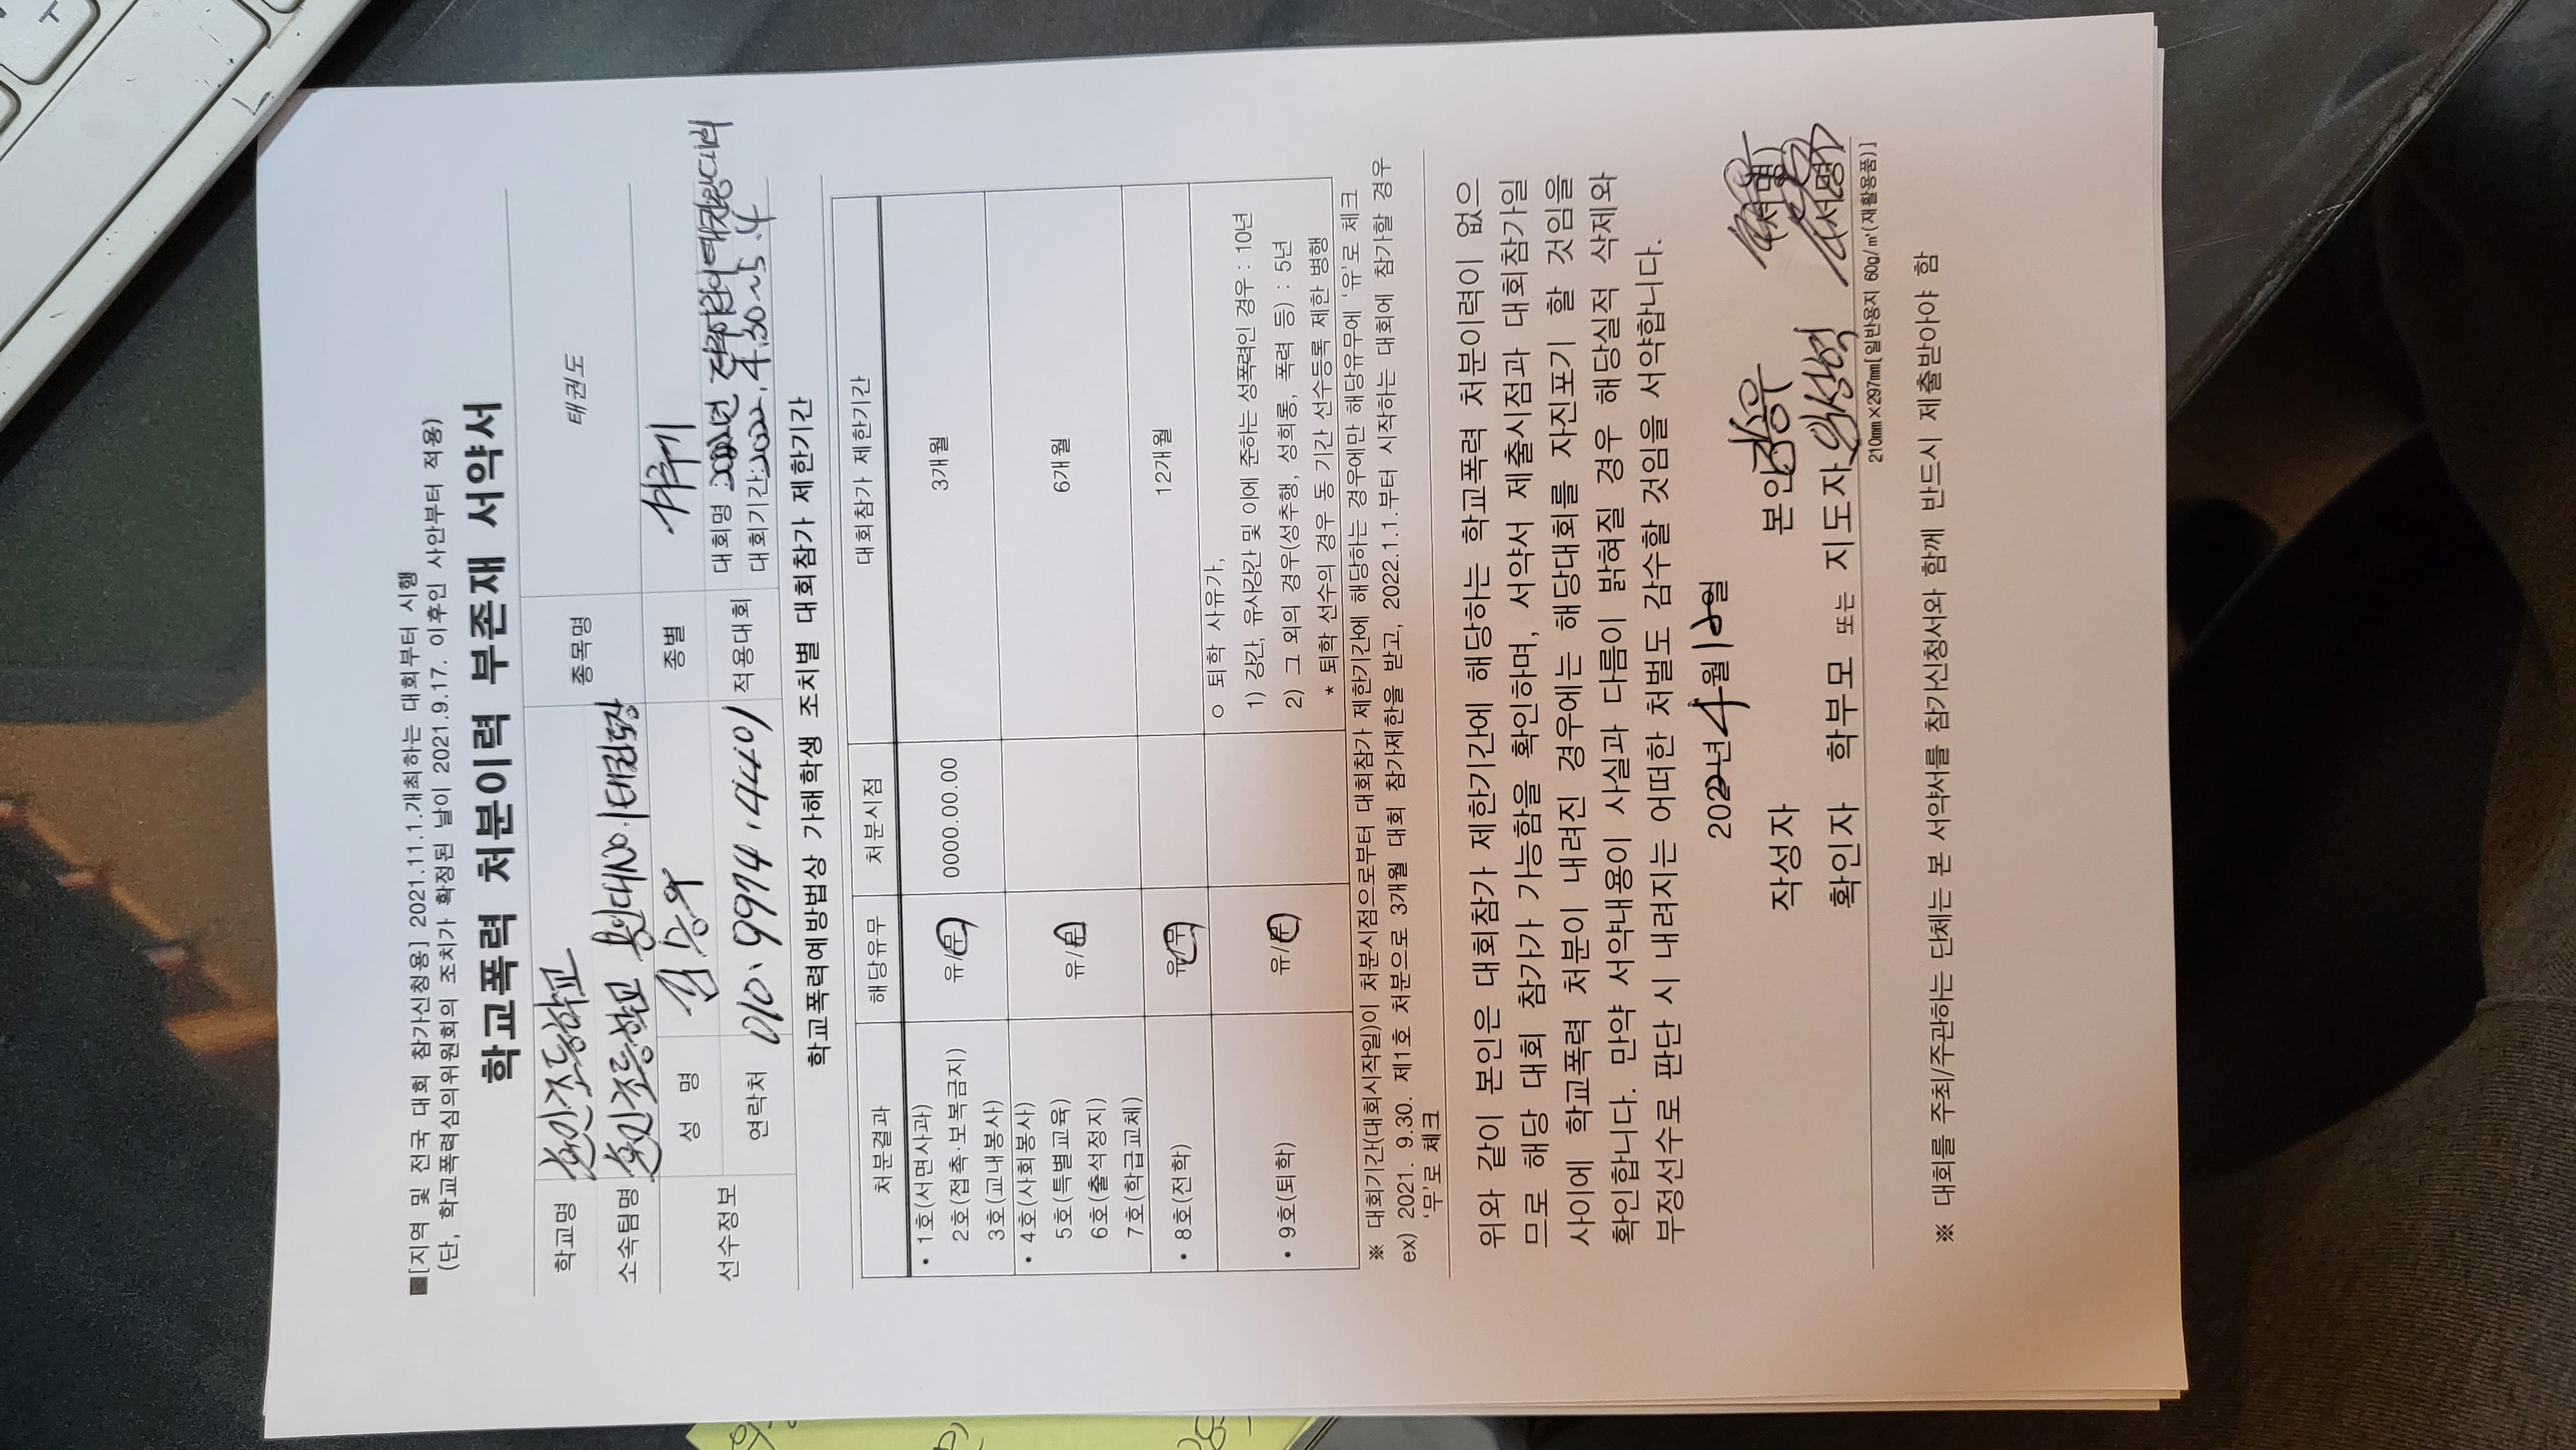 ■[지역 및 전국 대회 참가신청용] 2021.11.1.개최하는 대회부터 시행
(단, 학교폭력심의위원회의 조치가 확정된 날이 2021.9.17. 이후인 사안부터 적용)
학교폭력 처분이력 부존재 서약서
학교명 초등학교 종목명 태권도
소속팀명 초등학교 용인대No.1태권도장
선수정보 성 명 김 종별 겨루기
연락처 010. 9974. 4401 적용대회 대회명 : 2022년
대회기간: 2022. 4. 30 ~ 5. 4
학교폭력예방법상 가해학생 조치별 대회참가 제한기간
처분결과 해당유무 처분시점 대회참가 제한기간
• 1호(서면사과)
2호(접촉·보복금지) 유/무 0000.00.00 3개월
3호(교내봉사)
• 4호(사회봉사)
5호(특별교육) 유/무 6개월
6호(출석정지)
7호(학급교체)
• 8호(전학) 유/무 12개월
• 9호(퇴학) 유/무
ㅇ 퇴학 사유가,
1) 강간, 유사강간 및 이에 준하는 성폭력인 경우 : 10년
2) 그 외의 경우(성추행, 성희롱, 폭력 등) : 5년
* 퇴학 선수의 경우 동 기간 선수등록 제한 병행
※ 대회기간(대회시작일)이 처분시점으로부터 대회참가 제한기간에 해당하는 경우에만 해당유무에 '유'로 체크
ex) 2021. 9.30. 제1호 처분으로 3개월 대회 참가제한을 받고, 2022.1.1.부터 시작하는 대회에 참가할 경우
'무'로 체크
위와 같이 본인은 대회참가 제한기간에 해당하는 학교폭력 처분이력이 없으
므로 해당 대회 참가가 가능함을 확인하며, 서약서 제출시점과 대회참가일
사이에 학교폭력 처분이 내려진 경우에는 해당대회를 자진포기 할 것임을
확인합니다. 만약 서약내용이 사실과 다름이 밝혀질 경우 해당실적 삭제와
부정선수로 판단 시 내려지는 어떠한 처벌도 감수할 것임을 서약합니다.
2022년 4월 12일
작성자 본인 (서명)
확인자 학부모 또는 지도자 (서명)
210mm×297mm[일반용지 60g/㎡(재활용품)]
※ 대회를 주최/주관하는 단체는 본 서약서를 참가신청서와 함께 반드시 제출받아야 함